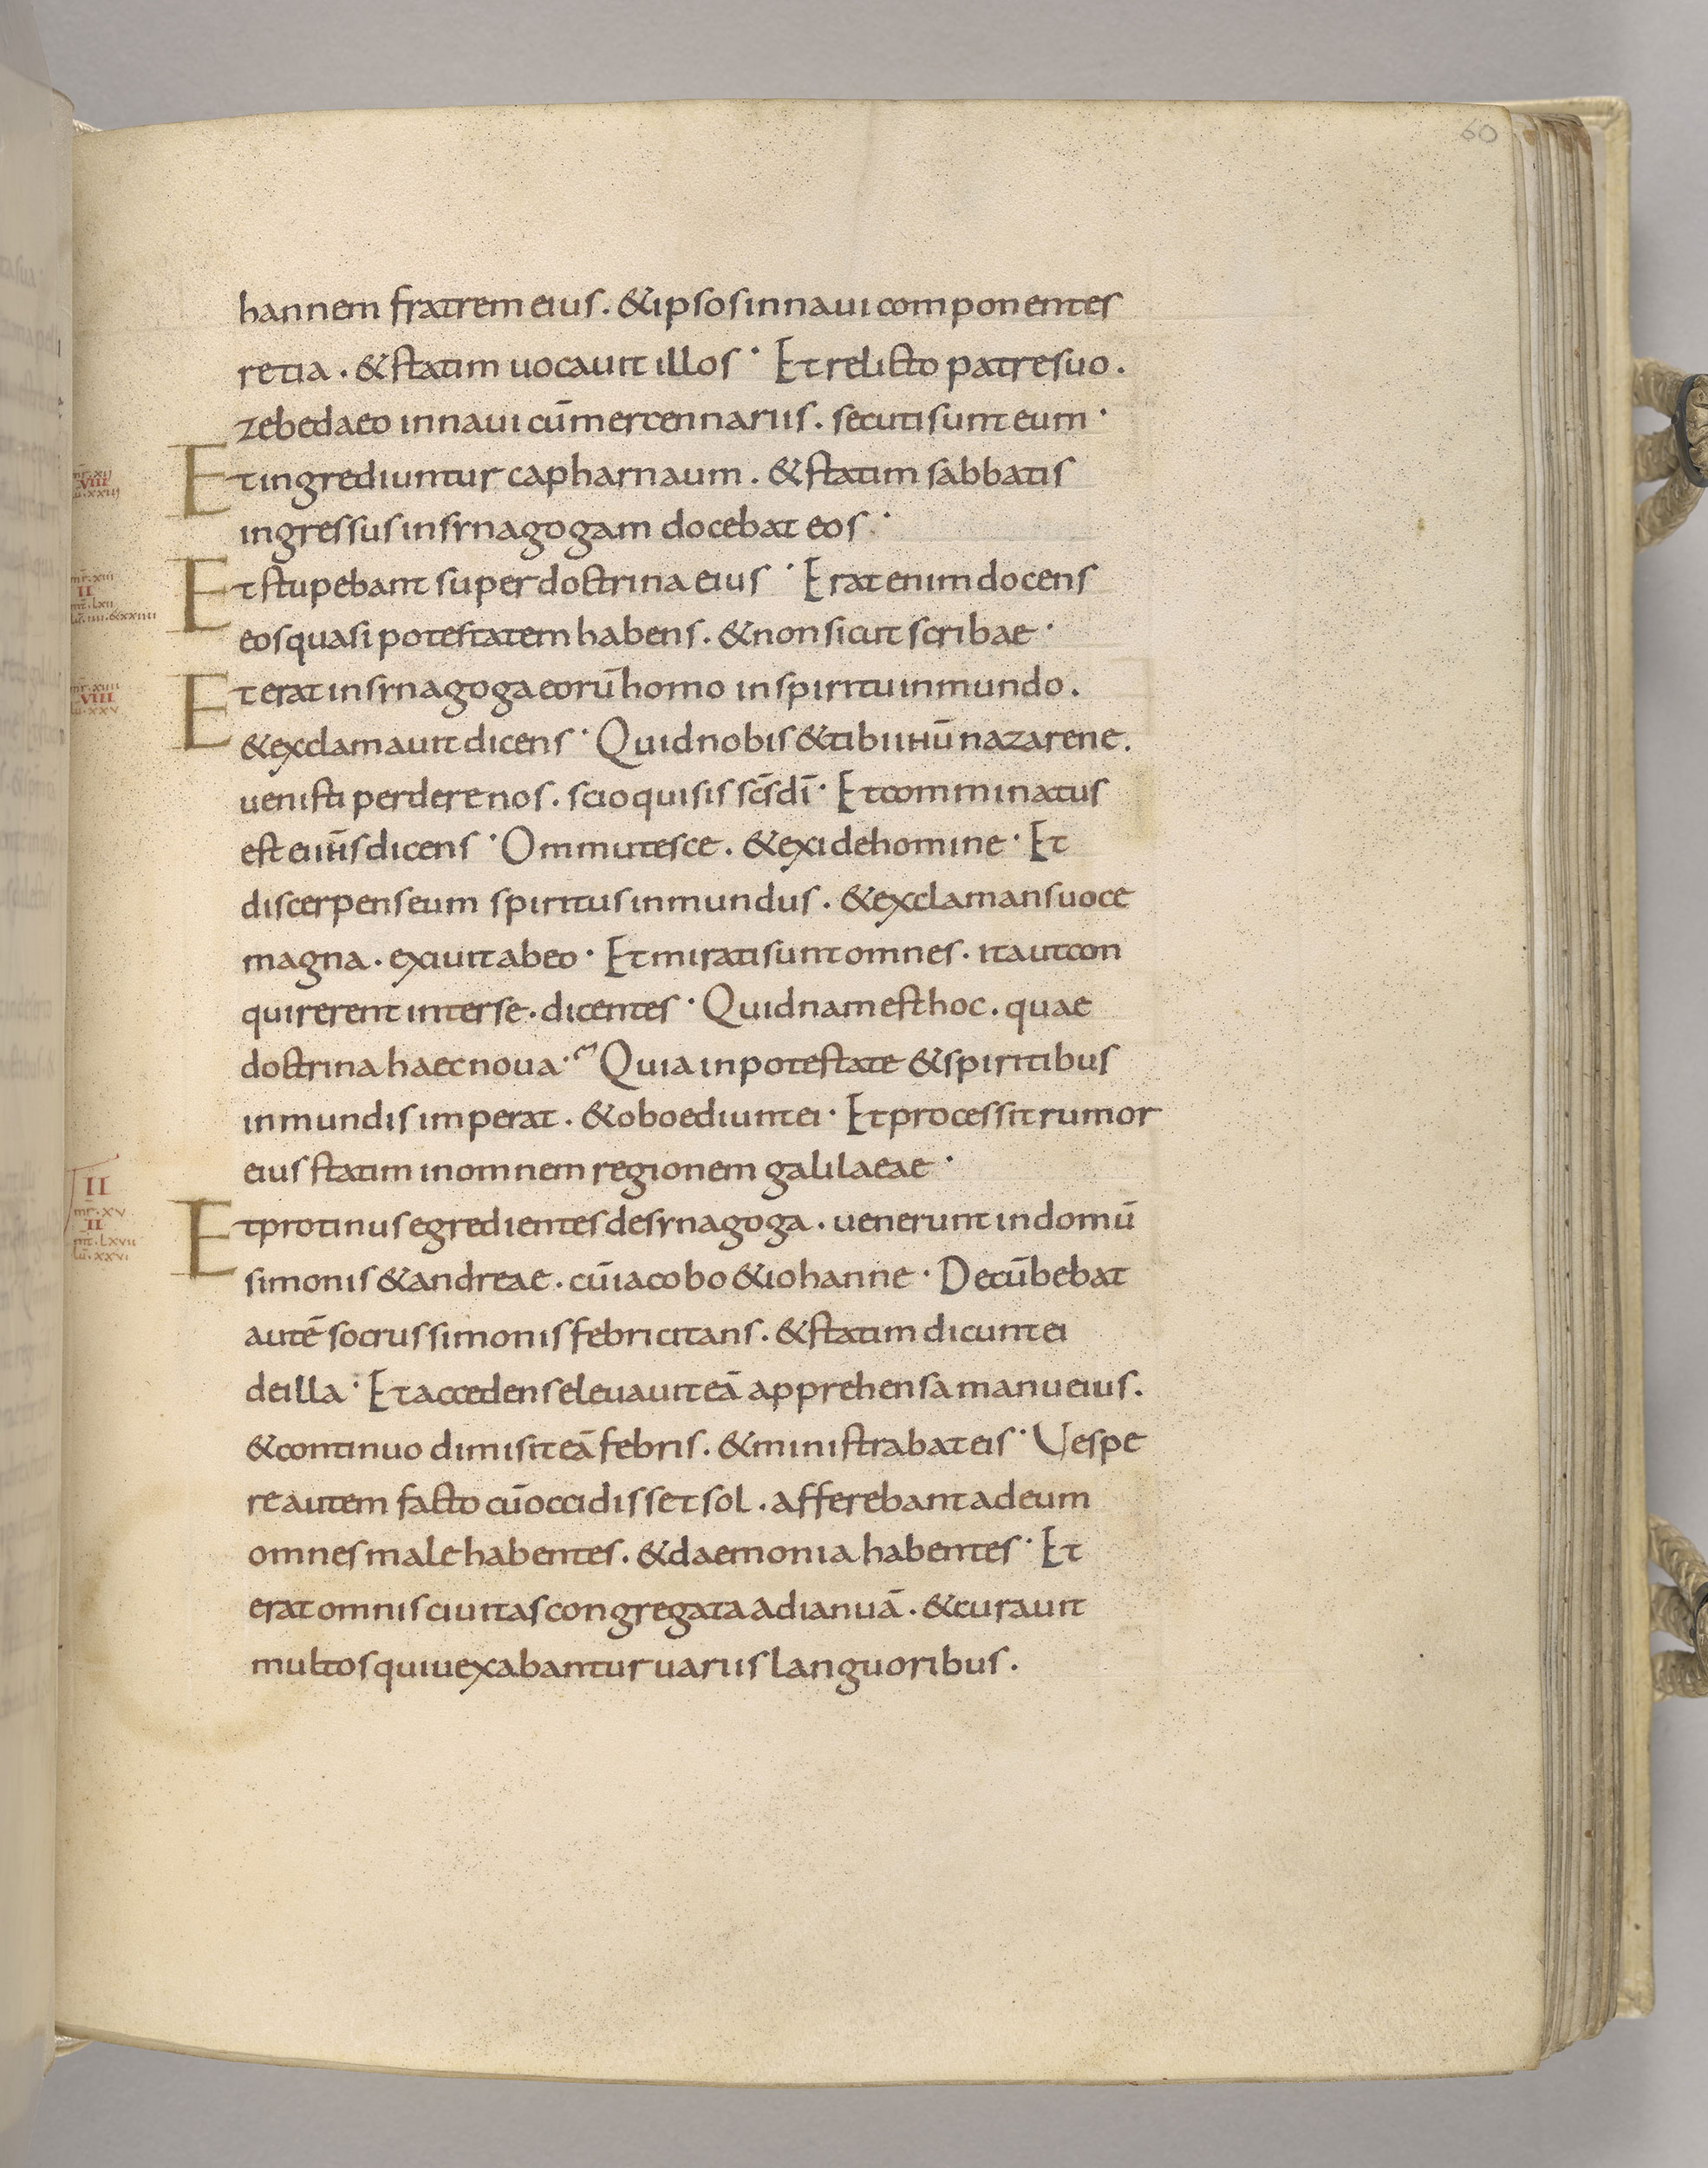 60
hannem fratrem eius . & ipsos in naui componentes
retia . & statim uocauit illos · Et relicto patre suo .
zebedaeo in naui cū mercennariis . secuti sunt eum ·
Et ingrediuntur capharnaum . & statim sabbatis
mr̄ . xii
viii
lu . xxiii
ingressus in synagogam docebat eos ·
Et stupebant super doctrina eius · Erat enim docens
mr̄ . xiii
II
mt̄ . lxii
lu . iiii . & xxiiii
eos quasi potestatem habens . & non sicut scribae ·
Et erat in synagoga eorū homo in spiritu inmundo .
mr̄ . xiiii
viii
lu . xxv
& exclamauit dicens · Quid nobis & tibi ihū nazarene .
uenisti perdere nos . scio qui sis sc̄s dī · Et comminatus
est ei ih̄s dicens · Ommutesce . & exi de homine · Et
discerpens eum spiritus inmundus . & exclamans uoce
magna . exiuit ab eo · Et mirati sunt omnes . ita ut con
quirerent inter se . dicentes · Quidnam est hoc . quae
doctrina haec noua · Quia in potestate & spiritibus
inmundis imperat . & oboediunt ei · Et processit rumor
eius statim in omnem regionem galilaeae ·
II
mr̄ . xv
II
mt̄ . lxvii
lū . xxvi
Et protinus egredientes de synagoga . uenerunt in domū
simonis & andreae . cū iacobo & iohanne · Decūbebat
autē socrus simonis febricitans . & statim dicunt ei
de illa · Et accedens eleuauit eā apprehensa manu eius .
& continuo dimisit eā febris . & ministrabat eis · Vespe
re autem facto cū occidisset sol . afferebant ad eum
omnes male habentes . & daemonia habentes · Et
erat omnis ciuitas congregata ad ianuā . & curauit
multos qui uexabantur uariis languoribus .